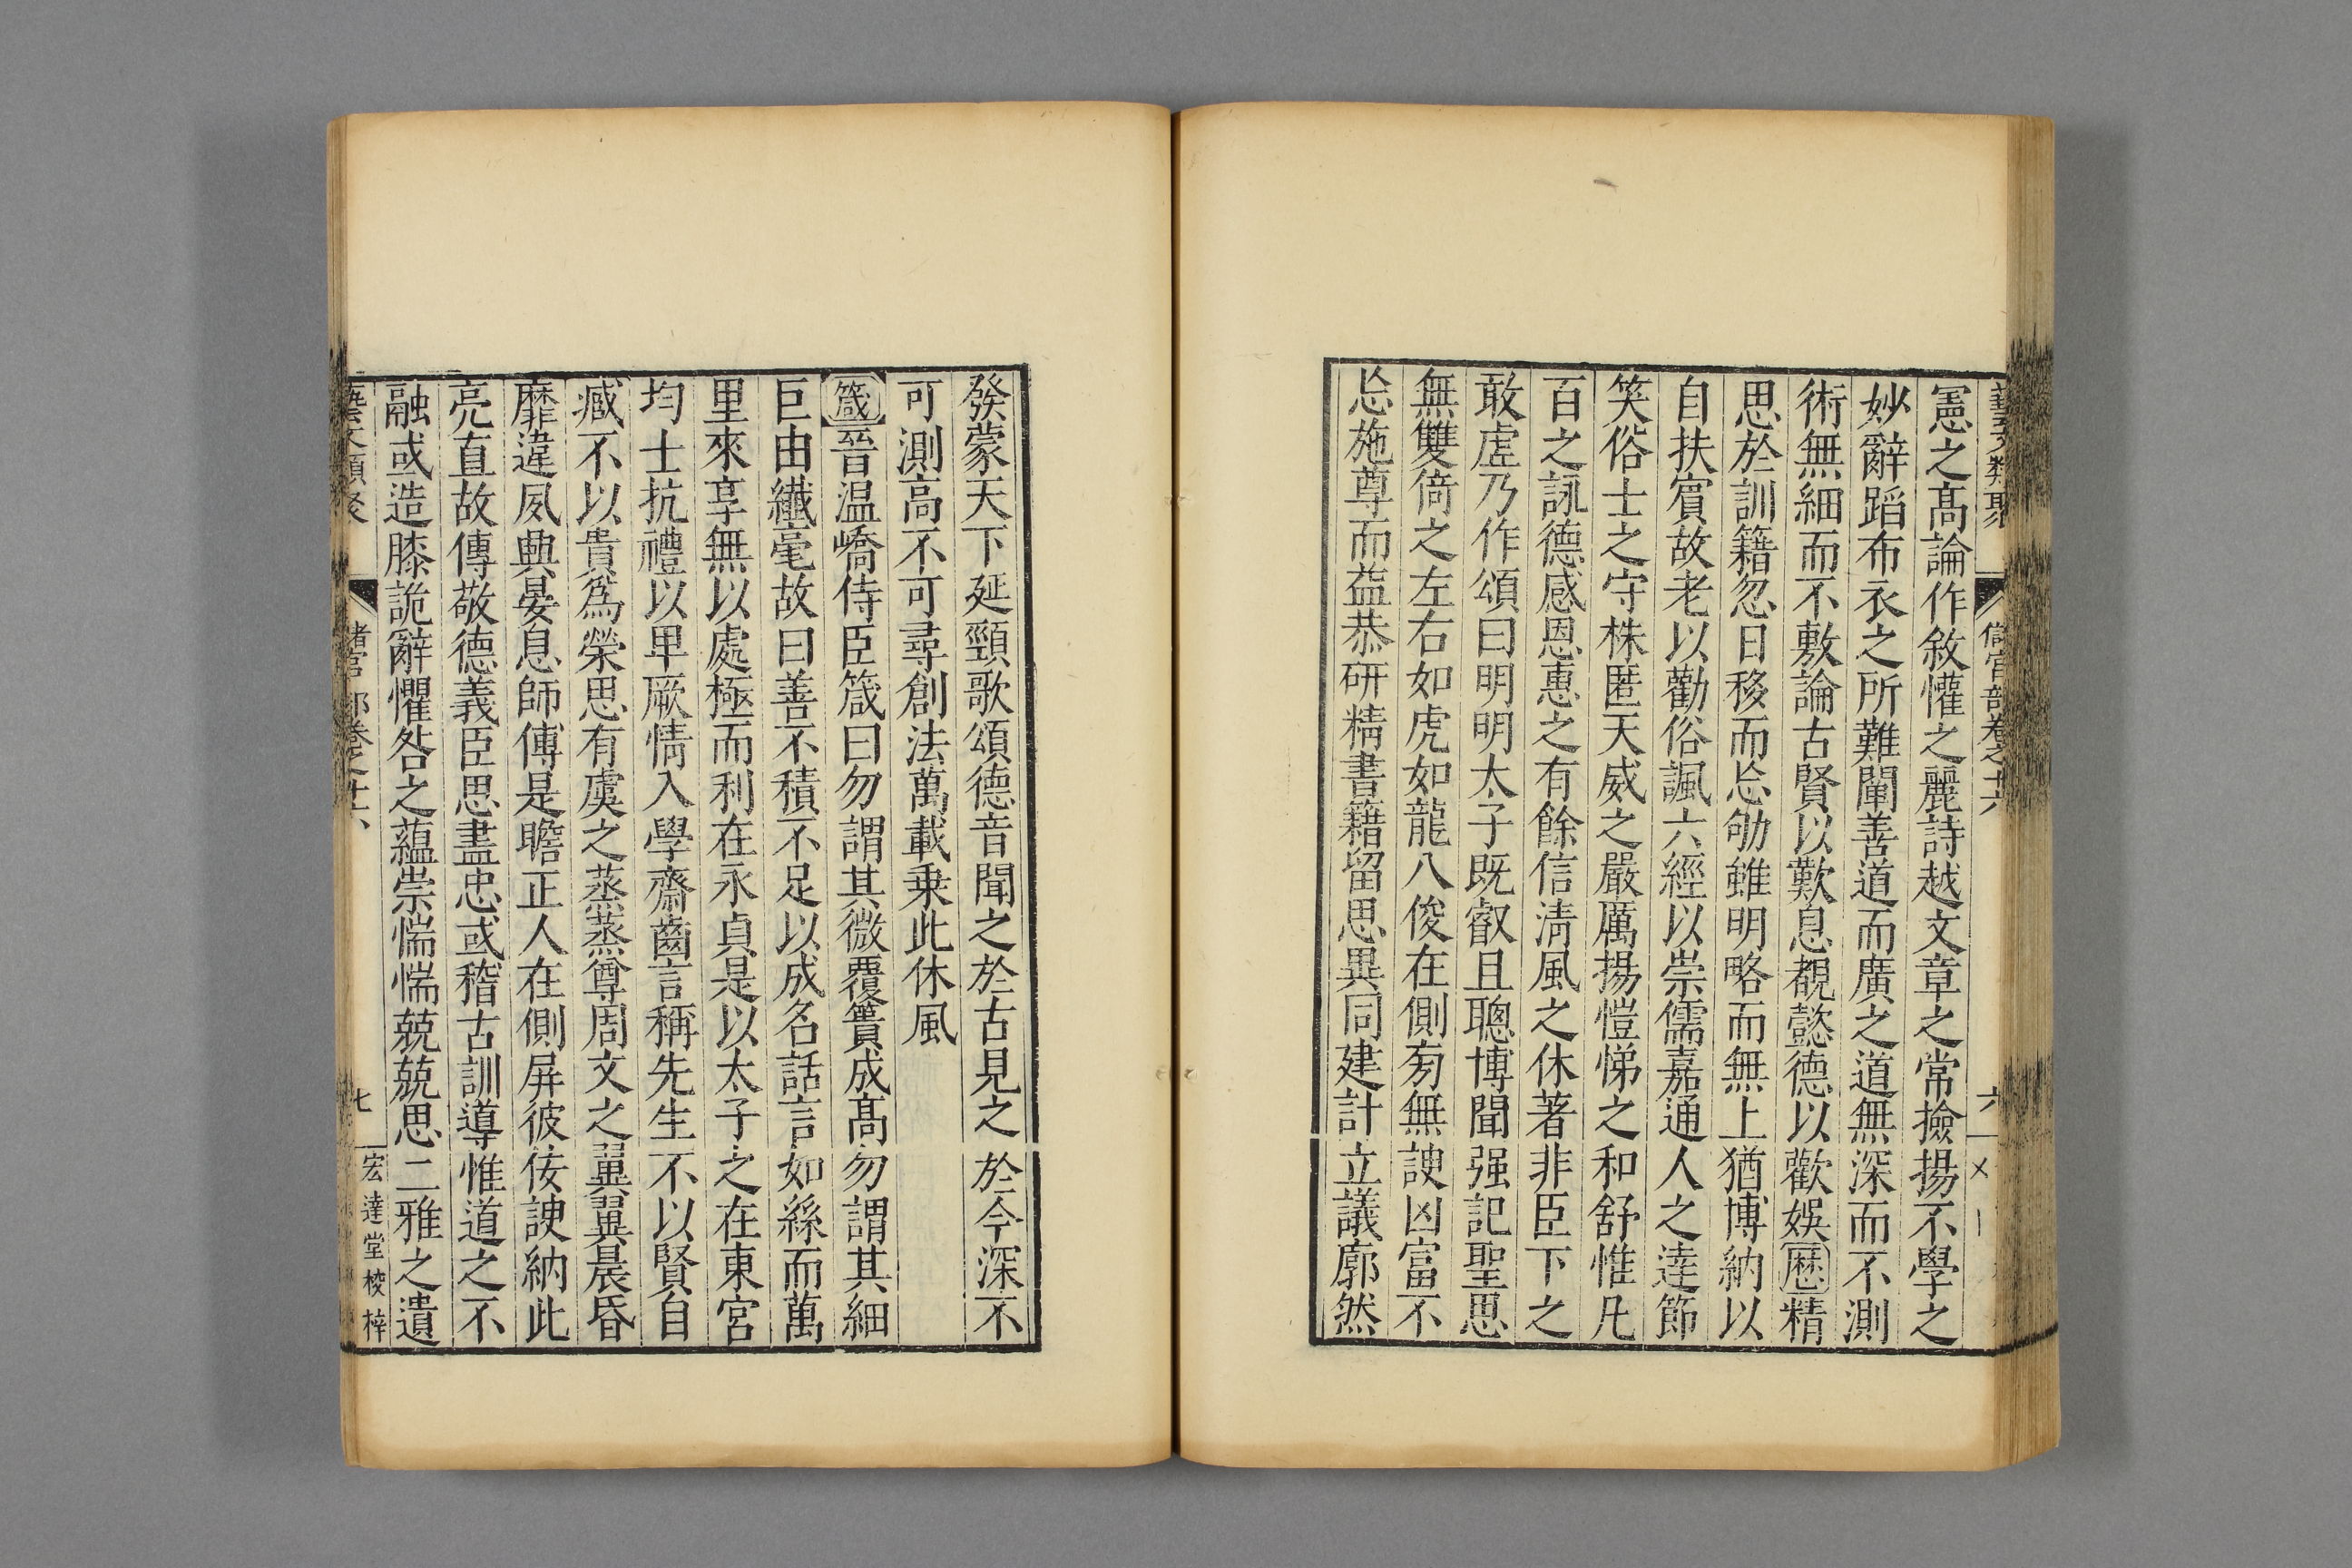 藝文類聚 儲宮部卷之十六 六
憲之高論作敘懽之麗詩越文章之常撿揚不學之
妙辭蹈布衣之所難闡善道而廣之道無深而不測
術無細而不敷論古賢以歎息覩懿德以歡娛歷精
思於訓籍忽日移而忘劬雖明略而無上猶博納以
自扶賓故老以勸俗諷六經以崇儒嘉通人之達節
笑俗士之守株匿天威之嚴厲揚愷悌之和舒惟凡
百之詠德感恩惠之有餘信淸風之休著非臣下之
敢虛乃作頌曰明明太子既叡且聰博聞强記聖思
無雙倚之左右如虎如龍八俊在側旁無諛凶富不
忘施尊而益恭研精書籍留思異同建計立議廓然
發蒙天下延頸歌頌德音聞之於古見之於今深不
可測高不可尋創法萬載乗此休風
箴晉温嶠侍臣箴曰勿謂其微覆簣成高勿謂其細
巨由纖毫故曰善不積不足以成名話言如絲而萬
里來享無以處極而利在永貞是以太子之在東宮
均士抗禮以卑厥情入學齋齒言稱先生不以賢自
臧不以貴爲榮思有虞之蒸蒸尊周文之翼翼晨昏
靡違夙典晏息師傅是瞻正人在側屏彼佞諛納此
亮直故傳敬德義臣思盡忠或稽古訓導惟道之不
融或造膝詭辭懼咎之蘊崇惴惴兢兢思二雅之遺
藝文類聚 儲宮部卷之十六 七 宏達堂校梓